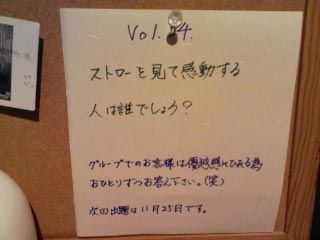 Vol.24.
ストローを見て感動する
人は誰でしょう?
グループでのお客様は優越感にひたる為
おひとりずつお答え下さい。(笑)
次回出題は11月25日です。